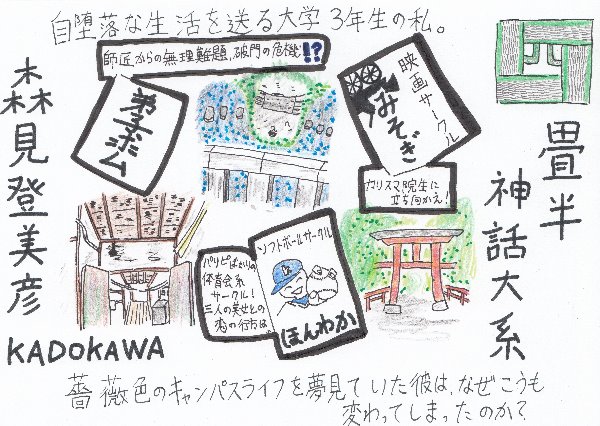 自堕落な生活を送る大学3年生の私。
師匠からの無理難題、破門の危機!?
弟子求ム
映画サークル
みそぎ
カリスマ院生に
立ち向かえ!
畳半
神話大系
森見登美彦
KADOKAWA
ソフトボールサークル
ほんわか
パリピばかりの
体育会系
サークル!
三人の美女との
恋の行方は
薔薇色のキャンパスライフを夢見ていた彼は、なぜこうも
変わってしまったのか?